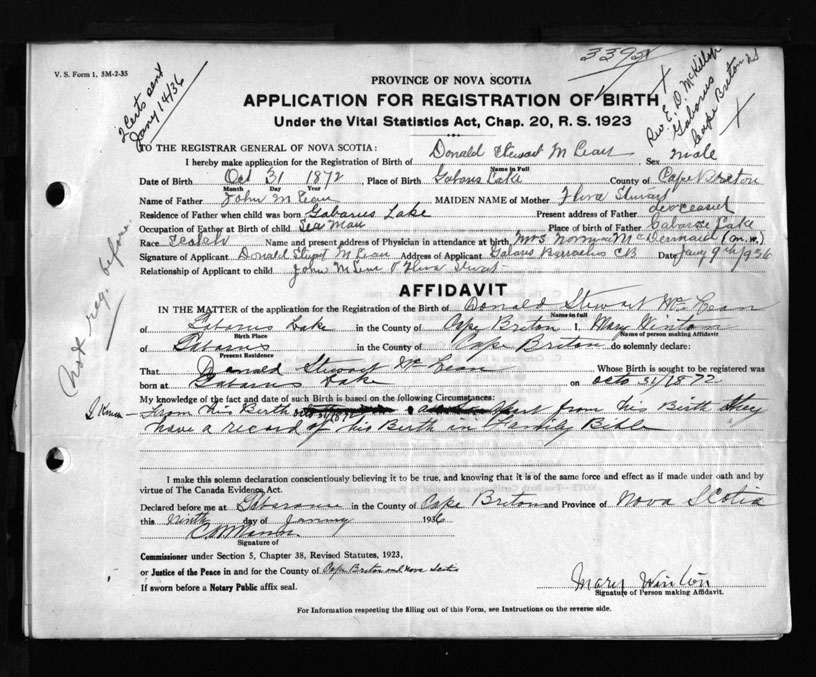 V. S. Form 1. 5M-2-35
2 Certs sent
Jany 14/36
Rev. E. D. McKillop
Gabarus
Cape Breton
PROVINCE OF NOVA SCOTIA
APPLICATION FOR REGISTRATION OF BIRTH
Under the Vital Statistics Act, Chap. 20, R. S. 1923
TO THE REGISTRAR GENERAL OF NOVA SCOTIA:
I hereby make application for the Registration of Birth of Donald Stewart McLean Sex male
Name in Full
Date of Birth Oct 31 1872, Place of Birth Gabarus Lake County of Cape Breton
Month Day Year
Name of Father John McLean MAIDEN NAME of Mother Flora Stewart
Residence of Father when child was born Gabarus Lake Present address of Father deceased
Occupation of Father at Birth of child Sea Man Place of birth of Father Gabarus Lake
Race Scotch Name and present address of Physician in attendance at birth Mrs Norman McDermaid (m.w.)
Signature of Applicant Donald Stuart McLean Address of Applicant Gabarus Barrachois CB Date Jany 9th 1936
Relationship of Applicant to child John McLean & Flora Stewart
AFFIDAVIT
IN THE MATTER of the application for the Registration of the Birth of Donald Stewart McLean
Name in full
of Gabarus Lake in the County of Cape Briton I, Mary Winton
Birth Place Name of person making Affidavit
of Gabarus in the County of Cape Briton do solemnly declare:
Present Residence
That Donald Stewart McLean Whose Birth is sought to be registered was
born at Gabarus Lake on octo 31/1872
My knowledge of the fact and date of such Birth is based on the following Circumstances:
I Know - From his Birth octo 31/1872 from his Birth they
have a record of his Birth in Family Bible
Not reg. before.
I make this solemn declaration conscientiously believing it to be true, and knowing that it is of the same force and effect as if made under oath and by
virtue of The Canada Evidence Act.
Declared before me at Gabarus in the County of Cape Briton and Province of Nova Scotia
this ninth day of January 1936
Signature of
Commissioner under Section 5, Chapter 38, Revised Statutes, 1923,
or Justice of the Peace in and for the County of Cape Briton and Nova Scotia
If sworn before a Notary Public affix seal.
Mary Winton
Signature of Person making Affidavit.
For Information respecting the filling out of this Form, see Instructions on the reverse side.